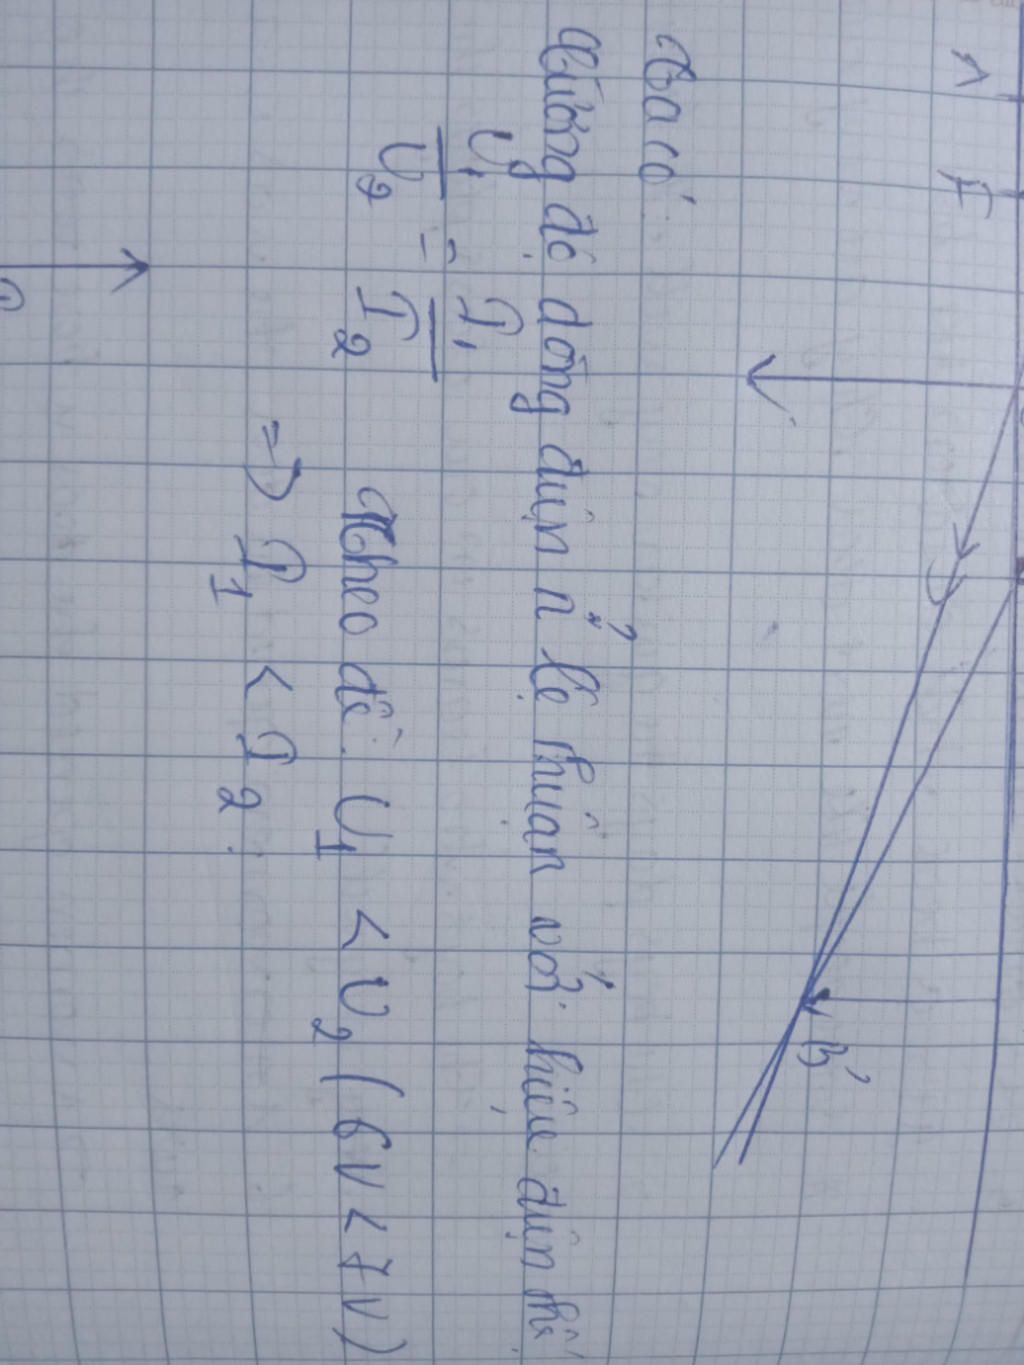 A F
B'
Ta có:
Cường độ dòng điện tỉ lệ thuận với hiệu điện thế
U₁/U₂ = I₁/I₂
Theo đề: U₁ < U₂ (6V < 7V)
=> I₁ < I₂.